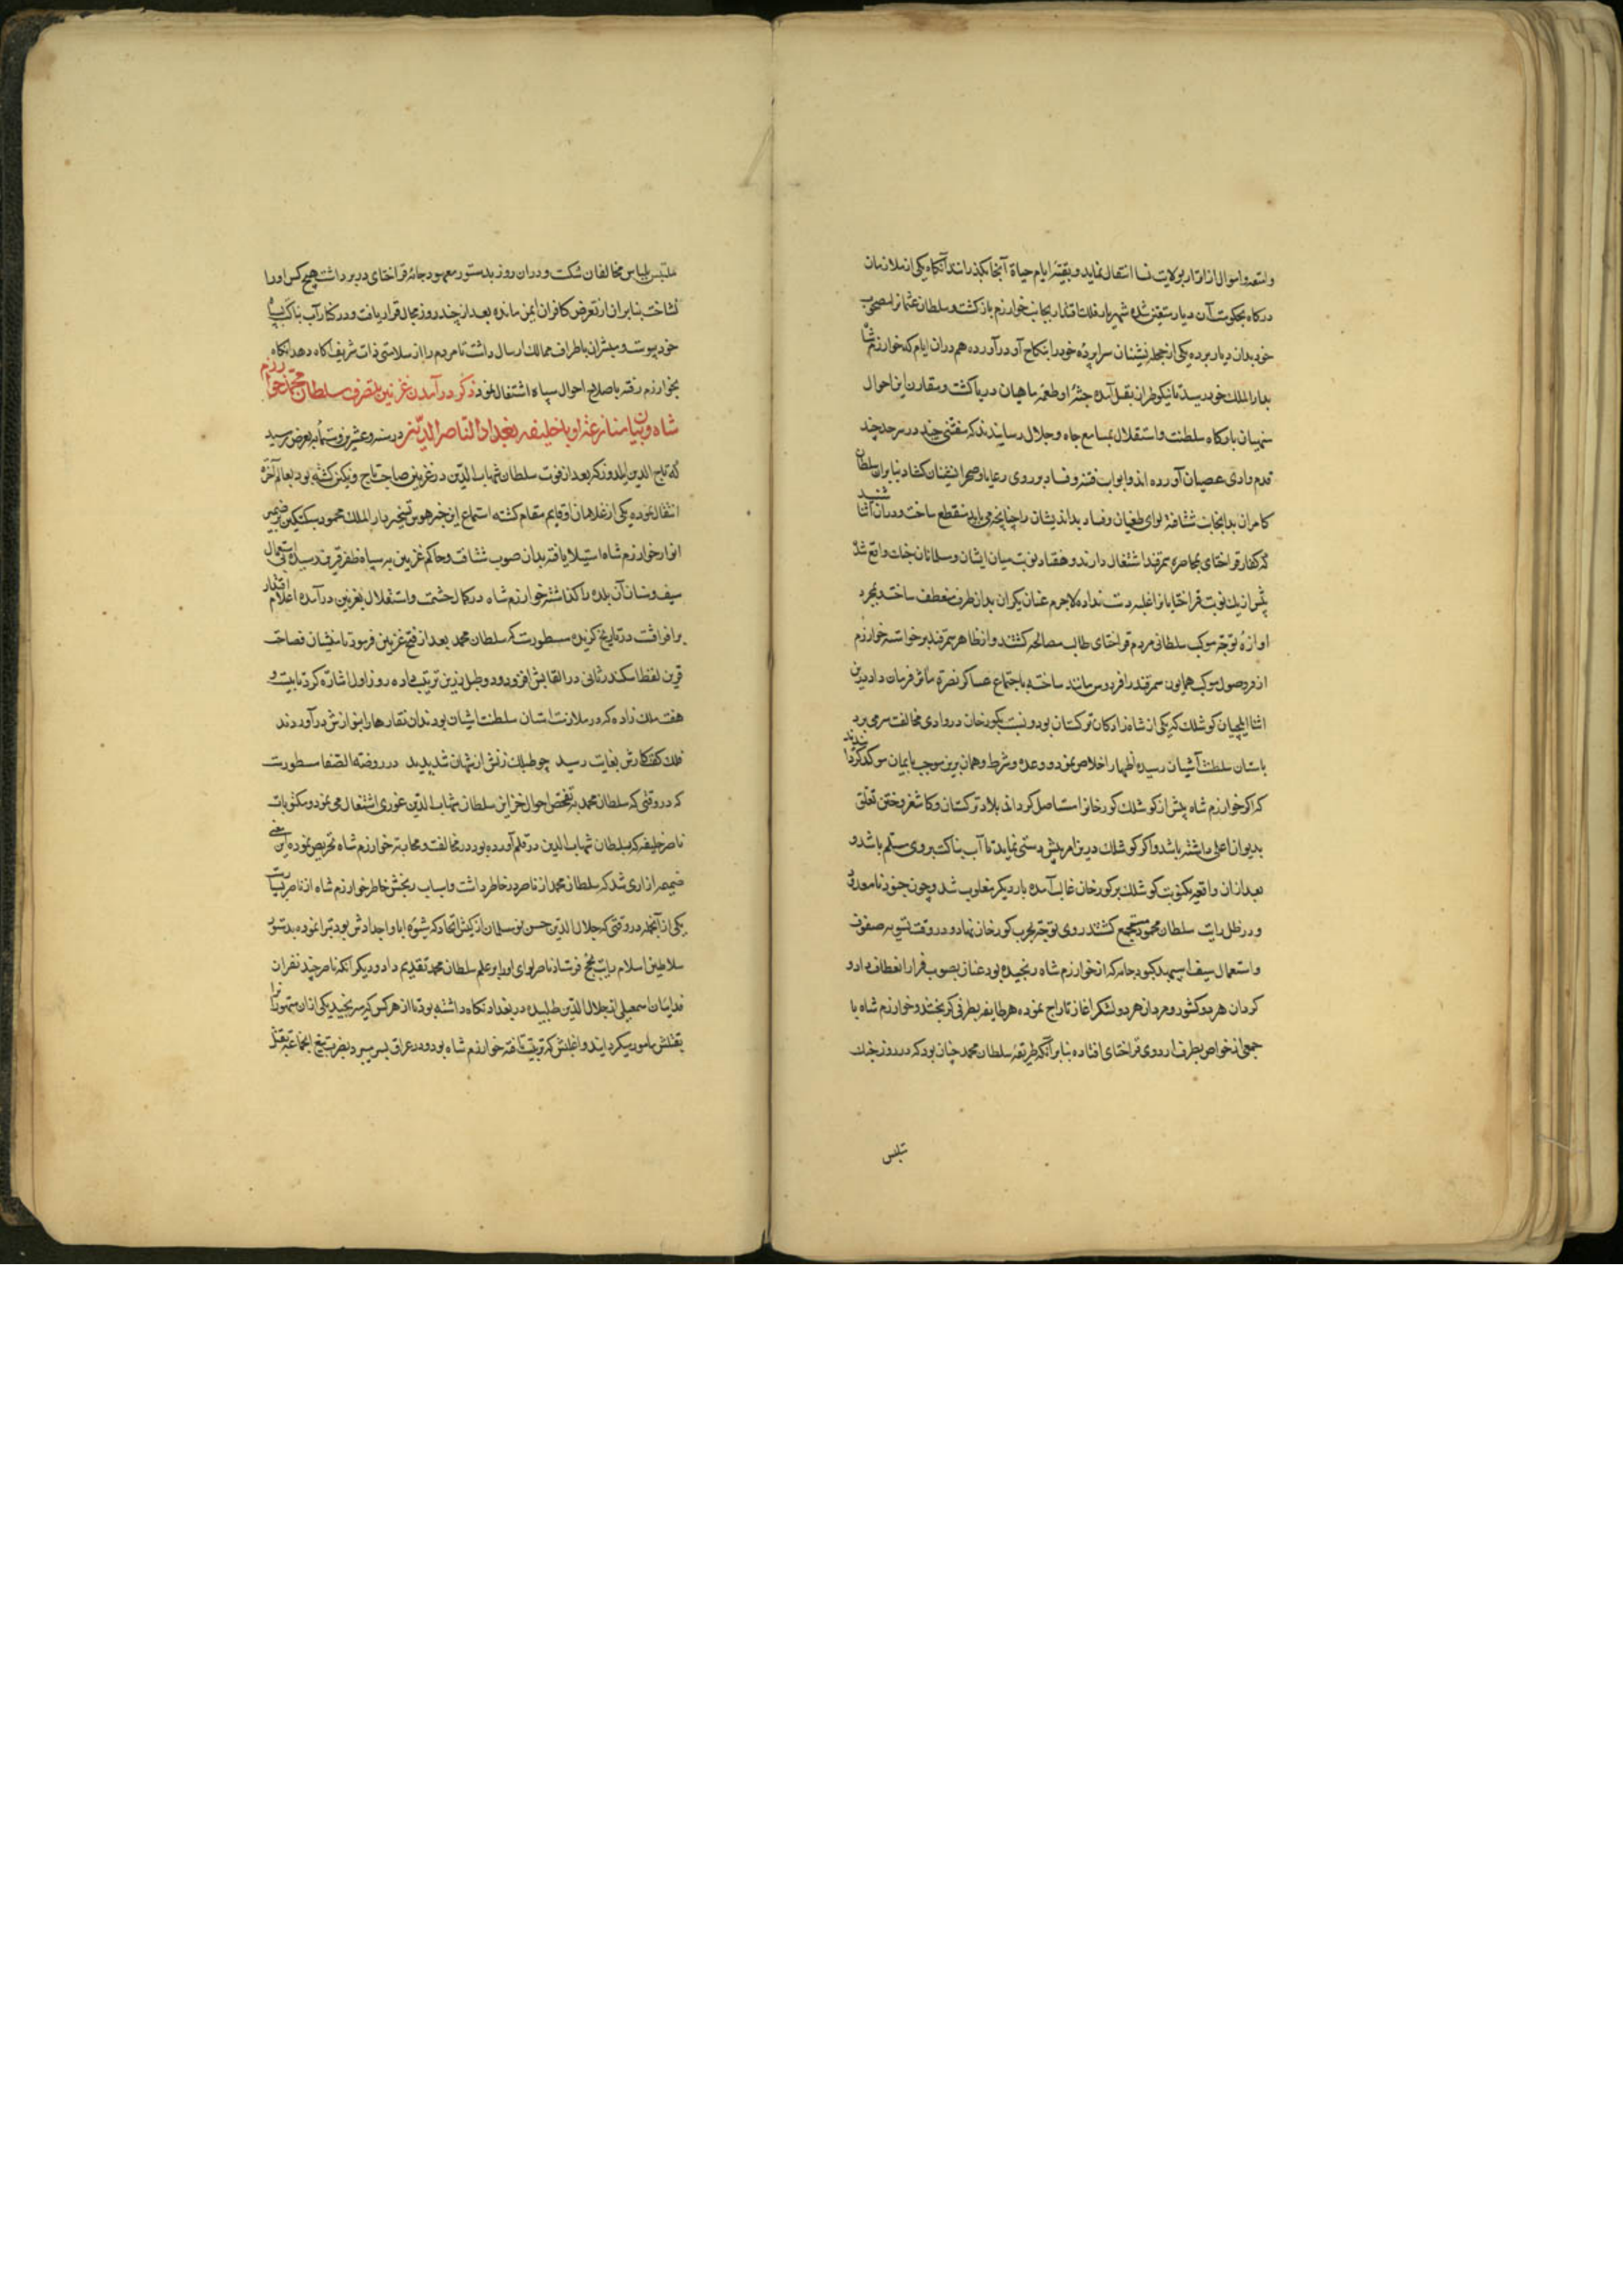 وامتعه و اموال از اترار بولایت نسا انتقال نماید و بقیهٔ ایام حیاة آنجا بکذراند آنکاه یکی از ملازمان
درکاه بحکومت آن دیار متعین شده شهریار فلک اقتدار بجانب خوارزم بازکشت و سلطان عثمانرا مصحوب
خود بدان دیار برده یکی از جمله نشینان سراپردهٔ خود را بنکاح او درآورده هم دران ایام که خوارزم شاه
بدار الملک خود رسید تاینکو طراز بقتل آمده جثهٔ او طعمهٔ ماهیان دریا کشت و مقارن این احوال
منهیان بارکاه سلطنت و استقلال بمسامع جاه و جلال رسانیدند که متفننی چند در سرحد جند
قدم در وادی عصیان آورده اند و ابواب فتنه و فساد بر روی رعایا و صحرانشینان کشاده بنابران سلطان
کامران بدانجانب شتافته لوای طغیان و فساد بداندیشان را چنانچه می باید منقطع ساخت و دران اثنا شنید
که کفار قراختای بمحاصره سمرقند اشتغال دارند و هفتاد نوبت میان ایشان و مسلمانان جنک واقع شد
بیش از یک نوبت قراختایانرا غلبه دست نداده لاجرم عنان یکران بدان طرف منعطف ساخت بمجرد
اوازهٔ توجه موکب سلطانی مردم قراختای طالب مصالحه کشتند و از ظاهر سمرقند برخواسته خوارزم
از فر وصول موکب همایون سمرقند را فردوس مانند ساخته باجتماع عساکر نصرة مآثر فرمان داد درین
اثنا ایلچیان کوشلک که یکی از شاه زادکان ترکستان بود و نسبت بکورخان در وادی مخالفت سر می برد
باستان سلطنت آشیان رسیده اظهار اخلاص نمود و وعده و شرط و همان برین موجب بایمان موکد کردانیدند
که اکر خوارزم شاه پیش از کوشلک کورخانرا مستاصل کرداند بلاد ترکستان و کاشغر و ختن تعلق
بدیوان اعلی داشته باشد و اکر کوشلک درین امر پیش دستی نماید تا آب بناکت بروی مسلم باشد و
بعد ازان واقعه یکنوبت کوشلک بر کورخان غالب آمده بار دیکر مغلوب شد و چون جنود نامعدود
و در ظل رایت سلطان محمود مجتمع کشتند روی توجه بحرب کورخان نهاد و در وقت تسویه صفوف
و استعمال سیف اسپهبد کبود جامه که از خوارزم شاه رنجیده بود عنان بصوب فرار انعطاف داد و
کردان هر دو کشور و مردان هر دو لشکر اغاز تاراج نموده هر طایفه بطرفی کریختند و خوارزم شاه با
جمعی از خواص بطرف اردوی قراختای افتاده بنابر آنکه طریقهٔ سلطان محمد چنان بود که در روز جنک
متلبس
متلبس بلباس مخالفان کشت و دران روز بدستور معهود جامهٔ قراختای در بر داشت هیچ کس او را
نشناخت بنابران از تعرض کافران ایمن مانده بعد از چند روز مجال قرار یافت و در کنار آب بناکت بسپاه
خود پیوست و مبشران باطراف ممالک ارسال داشت تا مردم را از سلامتی ذات شریف آکاه دهد آنکاه
بخوارزم رفته باصلاح احوال سپاه اشتغال نمود ذکر درآمدن غزنین بتصرف سلطان محمد خوارزم
شاه و بیان منازعت او با خلیفه بغداد الناصر الدین در سنه و عشرین و ستمأیه بعرض رسید
که تاج الدین ایلدوز که بعد از فوت سلطان شهاب الدین در غزنین صاحب تاج و نکین کشته بود بعالم آخره
انتقال نموده یکی از غلامان او قایم مقام کشته استماع این خبر هوس تسخیر دار الملک محمود سبکتکین بر ضمیر
انوار خوارزم شاه استیلا یافته بدان صوب شتافت و حاکم غزنین بر سپاه ظفر قرین رسیده بی استعمال
سیف و سنان آن بلده را کذاشته خوارزم شاه در کمال حشمت و استقلال بغزنین درآمده اعلام اقتدار
برافراشت در تاریخ کزیده مسطورست که سلطان محمد بعد از فتح غزنین فرمود تا منشیان فصاحت
قرین لفظ اسکندر ثانی در القابش افزودند و طبل زرین ترتیب داده روز اول اشاره کرد تا بیست و
هفت ملک زاده که در ملازمت استان سلطنت اشیان بودند ان نقارها را بنوازش درآوردند
فلک کفتا کارش بغایت رسید چو طبلک زنش ان شهان شد پدید در روضة الصفا مسطورست
که در وقتی که سلطان محمد به تفحص احوال خزاین سلطان شهاب الدین غوری اشتغال می نمود مکتوبات
ناصر خلیفه که بسلطان شهاب الدین در قلم آورده بود در مخالفت و محاربه خوارزم شاه تحریص نموده این معنی
ضمیمه ازاری شد که سلطان محمد از ناصر در خاطر داشت و اسباب رنجش خاطر خوارزم شاه از ناصر بسیارست
یکی از آنجمله در وقتی که جلال الدین حسن نومسلمان از کیش الحاد که شیوهٔ ابا و اجدادش بود تبرا نموده بدستور
سلاطین اسلام رایت بحج فرستاد ناصر لوای او را بر علم سلطان محمد تقدیم داد و دیکر آنکه ناصر چند نفر ان
فدائیان اسمعیلی از جلال الدین طلبیده در بغداد نکاه داشته بود تا از هر کس که برنجید یکی ازان متهورانرا
بقتلش مامور میکردانید و اغلمش که تربیت یافته خوارزم شاه بود و در عراق بسر میبرد بضرب تیغ انجماعت بقتل